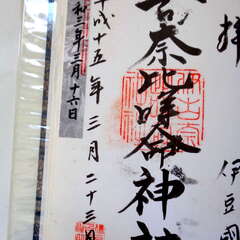 拝
伊豆國
古奈比咩命神社
平成十五年三月二十三日
和三年三月十六日